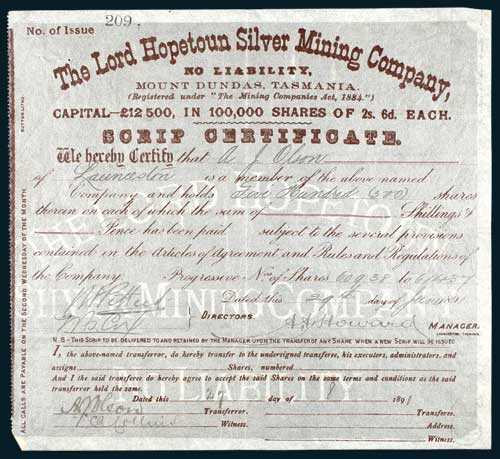 No. of Issue 209.
The Lord Hopetoun Silver Mining Company,
NO LIABILITY,
MOUNT DUNDAS, TASMANIA.
(Registered under "The Mining Companies Act, 1884.")
CAPITAL—£12500, IN 100,000 SHARES OF 2s. 6d. EACH.
SCRIP CERTIFICATE.
We hereby Certify that A J Olson
of Launceston is a member of the above named
Company and holds Five Hundred (500) shares
therein on each of which the sum of Shillings &
Pence has been paid subject to the several provisions
contained in the Articles of Agreement and Rules and Regulations of
the Company. Progressive Nos of Shares 60938 to
Dated this 29th day of June 91
DIRECTORS. A H Howard MANAGER.
LAUNCESTON, TASMANIA.
N.B - THIS SCRIP TO BE DELIVERED TO AND RETAINED BY THE MANAGER UPON THE TRANSFER OF ANY SHARE WHEN A NEW SCRIP WILL BE ISSUED
I, the above-named transferror, do hereby transfer to the undersigned transferee, his executors, administrators, and
assigns Shares, numbered
And I the said transferee do hereby agree to accept the said Shares on the same terms and conditions as the said
transferror held the same.
Dated this 27 day of 8 1891
A J Olson Transferror. Transferee.
Collins Witness. Address.
Witness.
ALL CALLS ARE PAYABLE ON THE SECOND WEDNESDAY OF THE MONTH
SILVER MINING COMPANY
NO LIABILITY